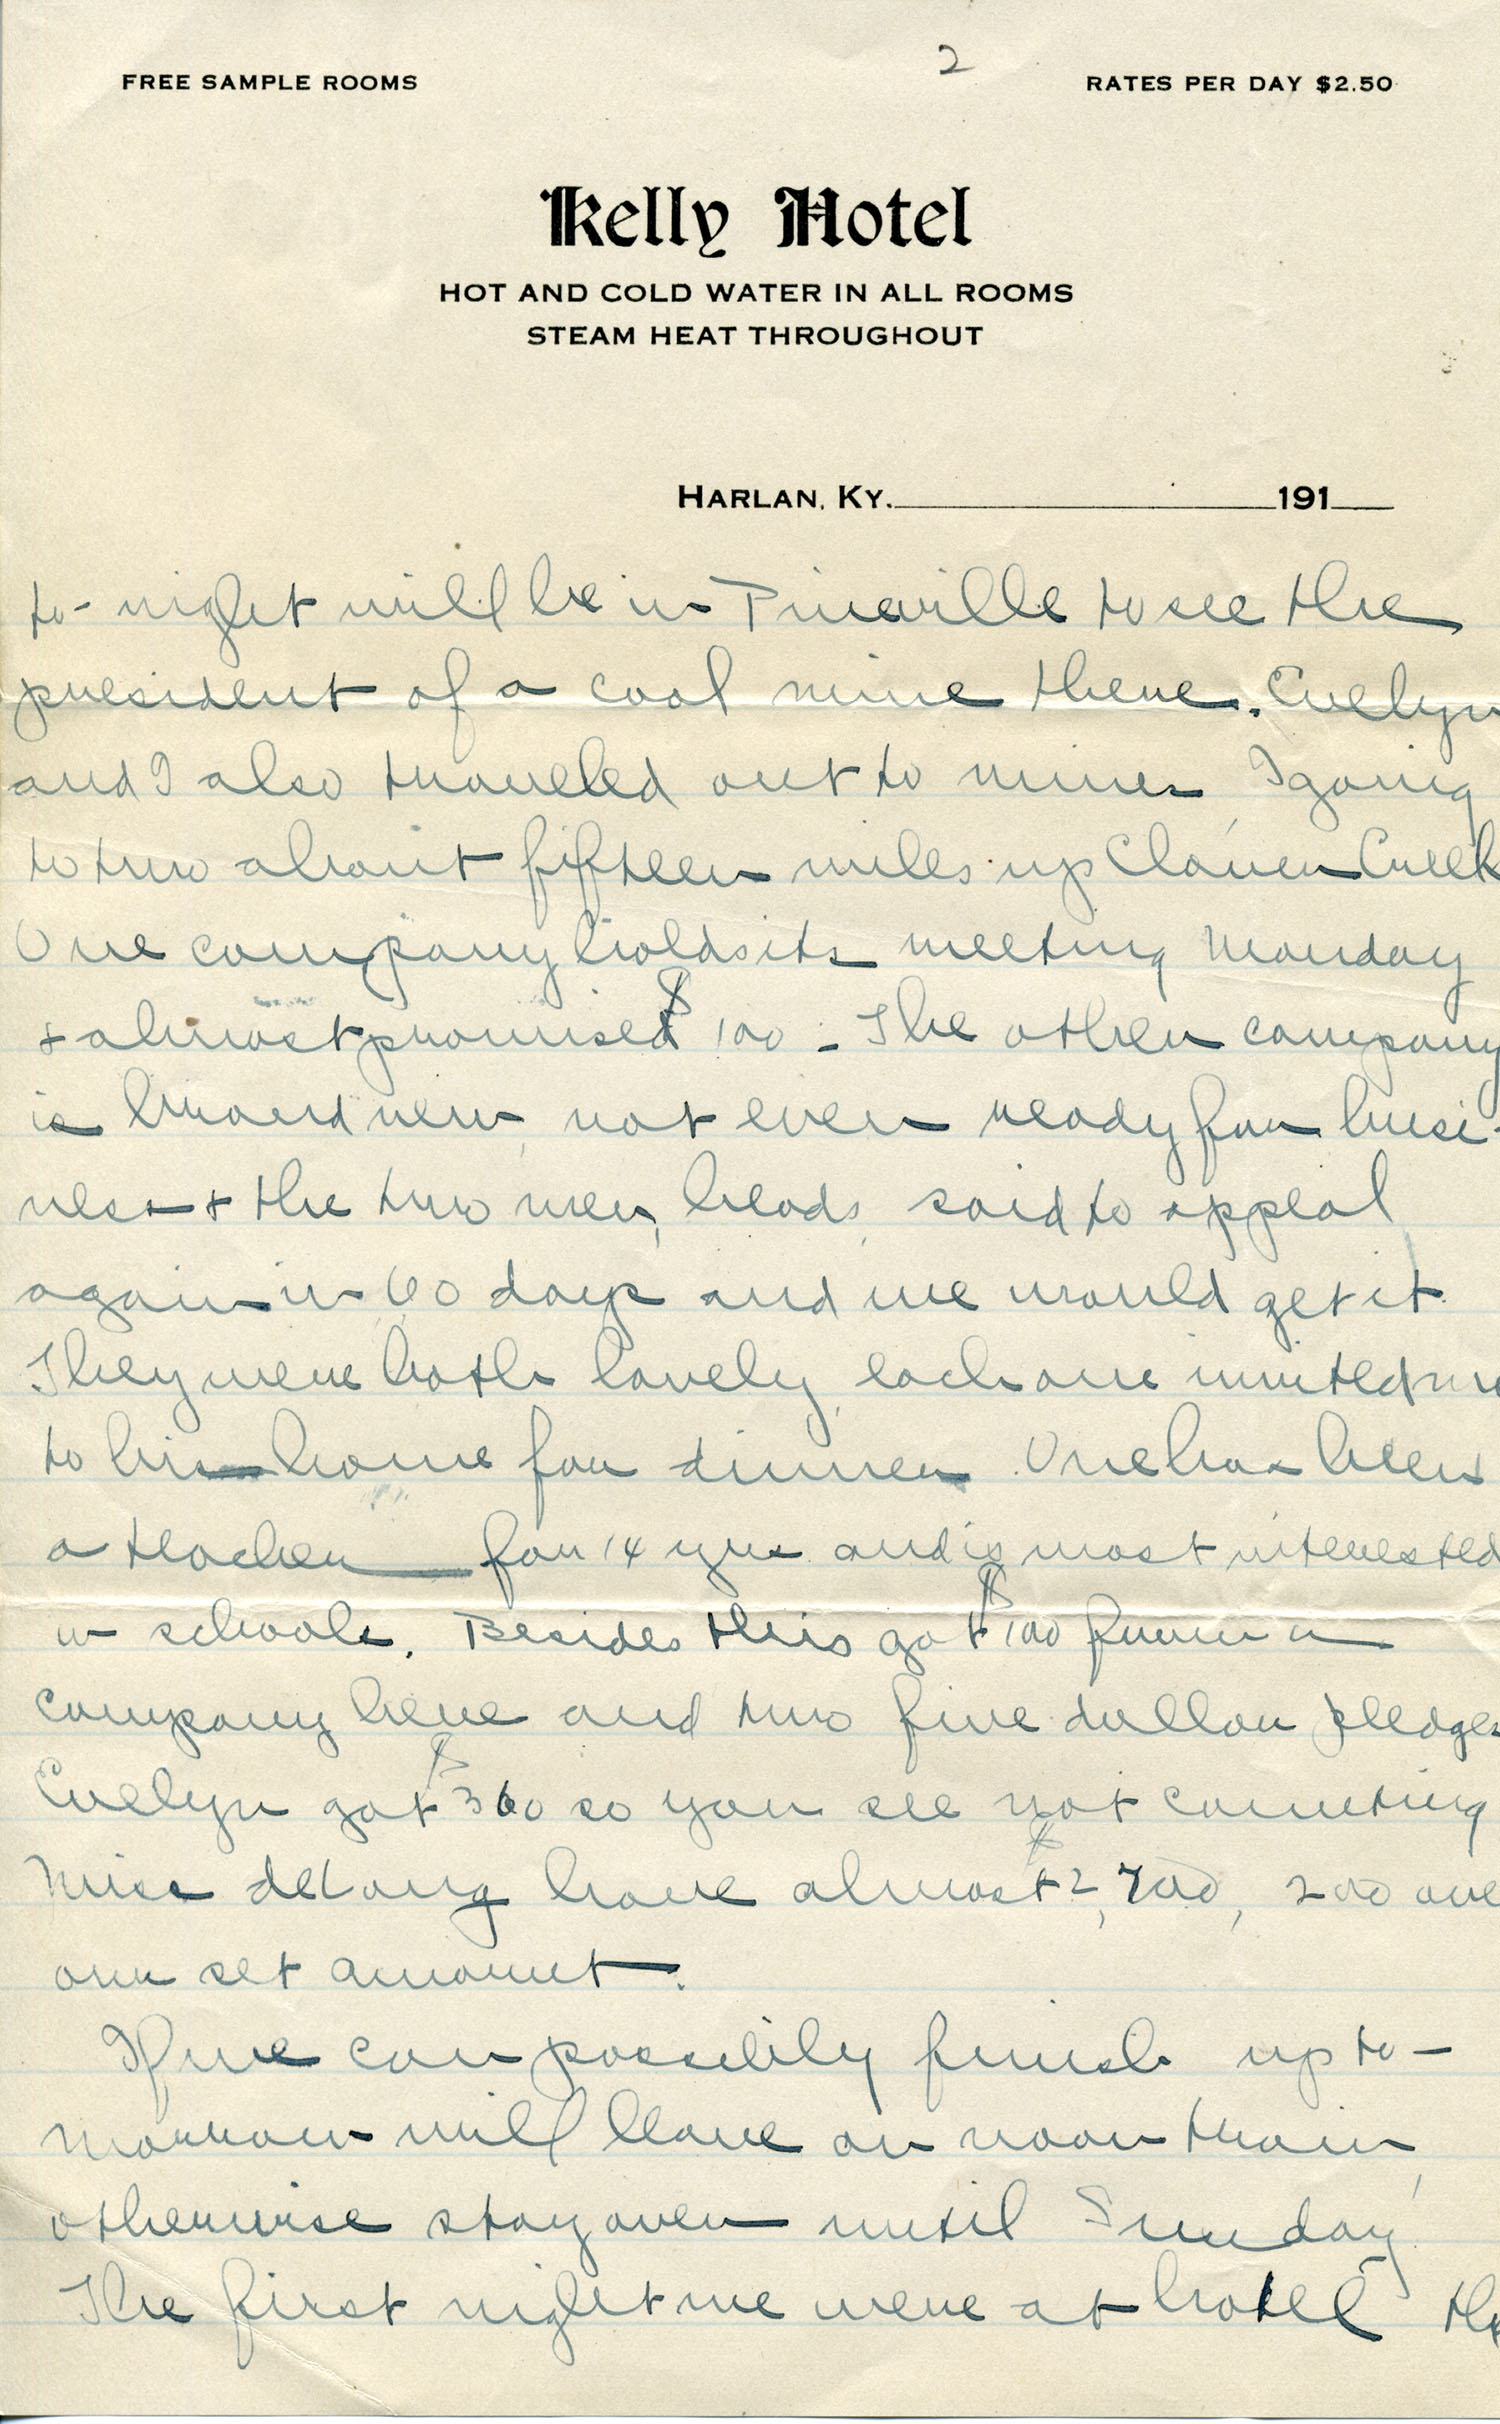 2
FREE SAMPLE ROOMS RATES PER DAY $2.50
Kelly Hotel
HOT AND COLD WATER IN ALL ROOMS
STEAM HEAT THROUGHOUT
HARLAN, KY. 191
to-night will be in Pineville to see the
president of a coal mine there. Evelyn
and I also traveled out to mines, I going
to two about fifteen miles up Clover Creek
One company holds its meeting Monday
+ almost promised $100 - The other company
is brand new, not even ready for busi-
ness + the two men, heads, said to appeal
again in 60 days and we would get it.
They were both lovely, each one invited me
to his home for dinner. One has been
a teacher for 14 yrs. and is most interested
in schools. Besides this got $100 from a
company here and two five dollar pledges
Evelyn got $360 so you see not counting
Miss deLong have almost $2,700, 200 over
our set amount.
If we can possibily finish up to-
morrow will leave on noon train,
otherwise stay over until Sunday.
The first night we were at hotel